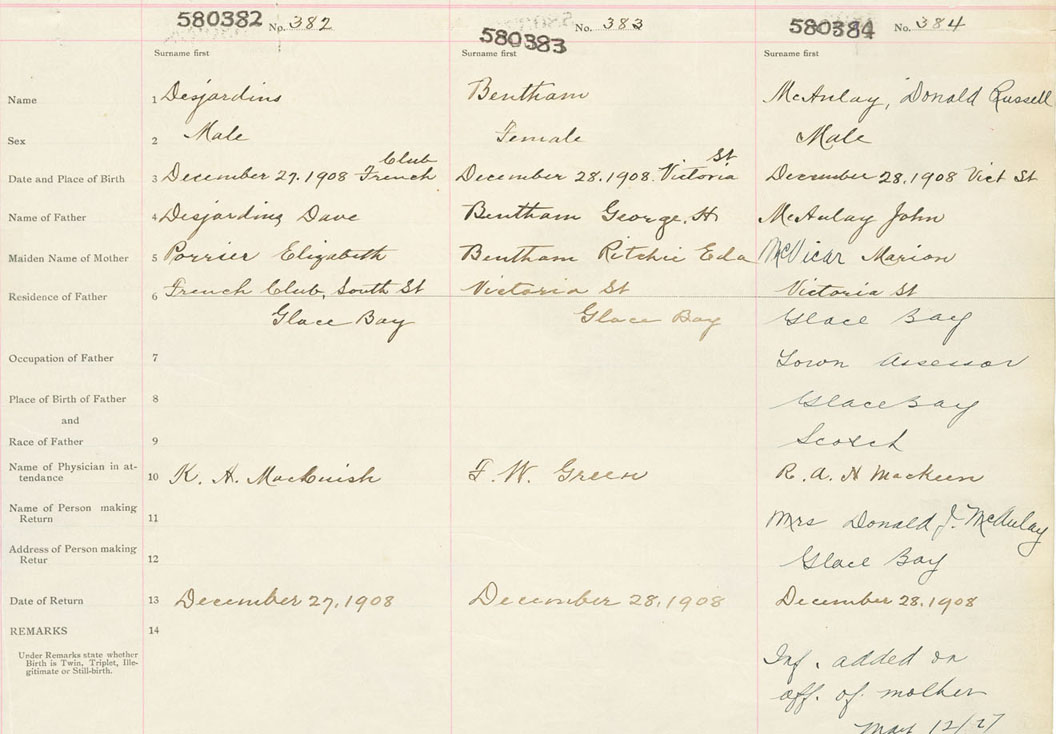 580382 No. 382 580383 No. 383 580384 No. 384
Surname first Surname first Surname first
Name 1 Desjardins Bentham McAulay, Donald Russell
Sex 2 Male Female Male
Club St
Date and Place of Birth 3 December 27.1908 French December 28.1908. Victoria December 28.1908 Vict St
Name of Father 4 Desjardins Dave Bentham George. H. McAulay John
Maiden Name of Mother 5 Porrier Elizabeth Bentham Ritchie Eda McVicar Marion
Residence of Father 6 French Club, South St Victoria St Victoria St
Glace Bay Glace Bay Glace Bay
Occupation of Father 7 Town Assessor
Place of Birth of Father 8 Glace Bay
and
Race of Father 9 Scotch
Name of Physician in at-
tendance 10 K. A. MacCuish F. W. Green R. A. H MacKeen
Name of Person making
Return 11 Mrs Donald J. McAulay
Address of Person making
Retur 12 Glace Bay
Date of Return 13 December 27, 1908 December 28, 1908 December 28, 1908
REMARKS 14
Under Remarks state whether
Birth is Twin, Triplet, Ille-
gitimate or Still-birth.
Inf. added on
aff. of mother
May 12/27